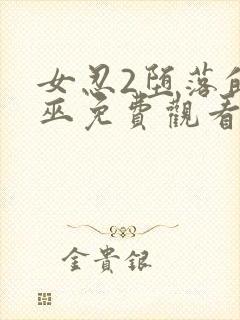 女忍2堕落的
巫免費觀看
金貴銀